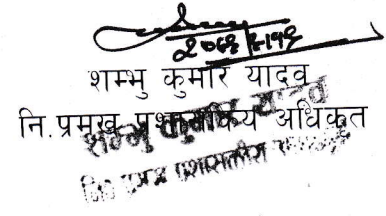 शम्भु कुमार यादव
नि.प्रमुख प्रशासकिय अधिकृत
शम्भु कुमार यादव
नि॰ प्रमुख प्रशासकीय